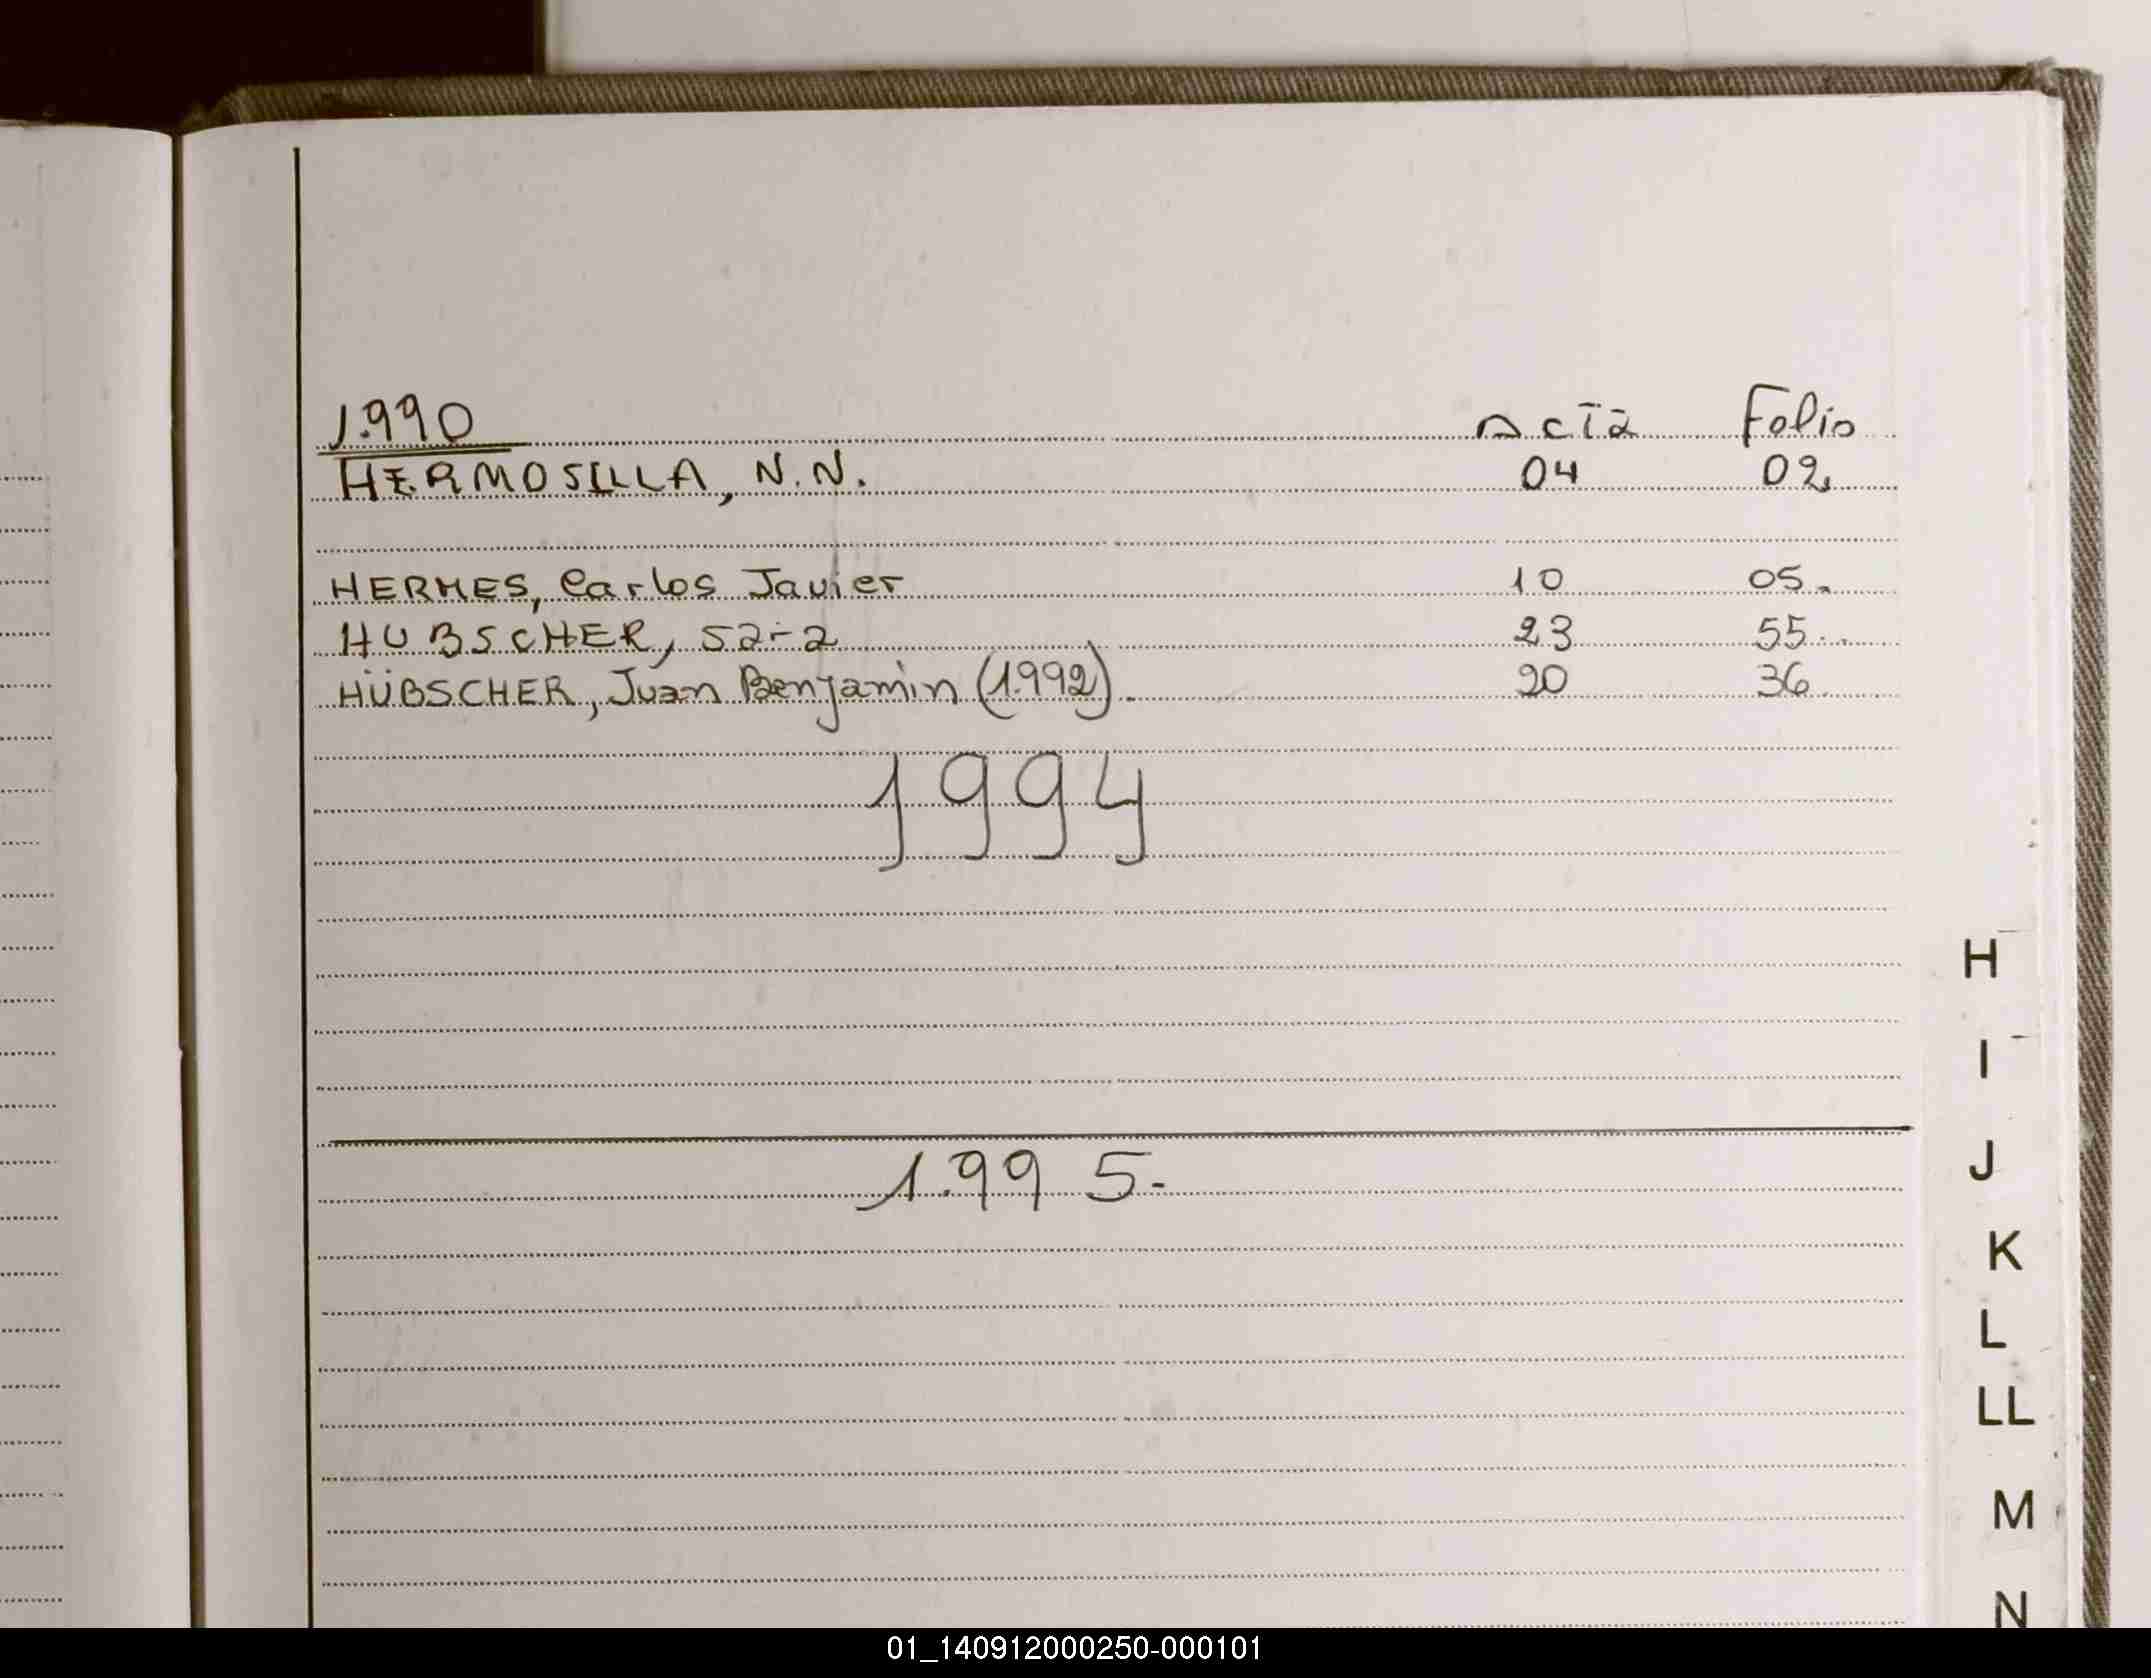 1.990 Acta Folio
HERMOSILLA, N.N. 04 02
HERMES, Carlos Javier 10 05.
HUBSCHER, Sara 23 55.
HÜBSCHER, Juan Benjamin (1.992). 20 36
1994
1.995.-
H
I
J
K
L
LL
M
N
01_140912000250-000101